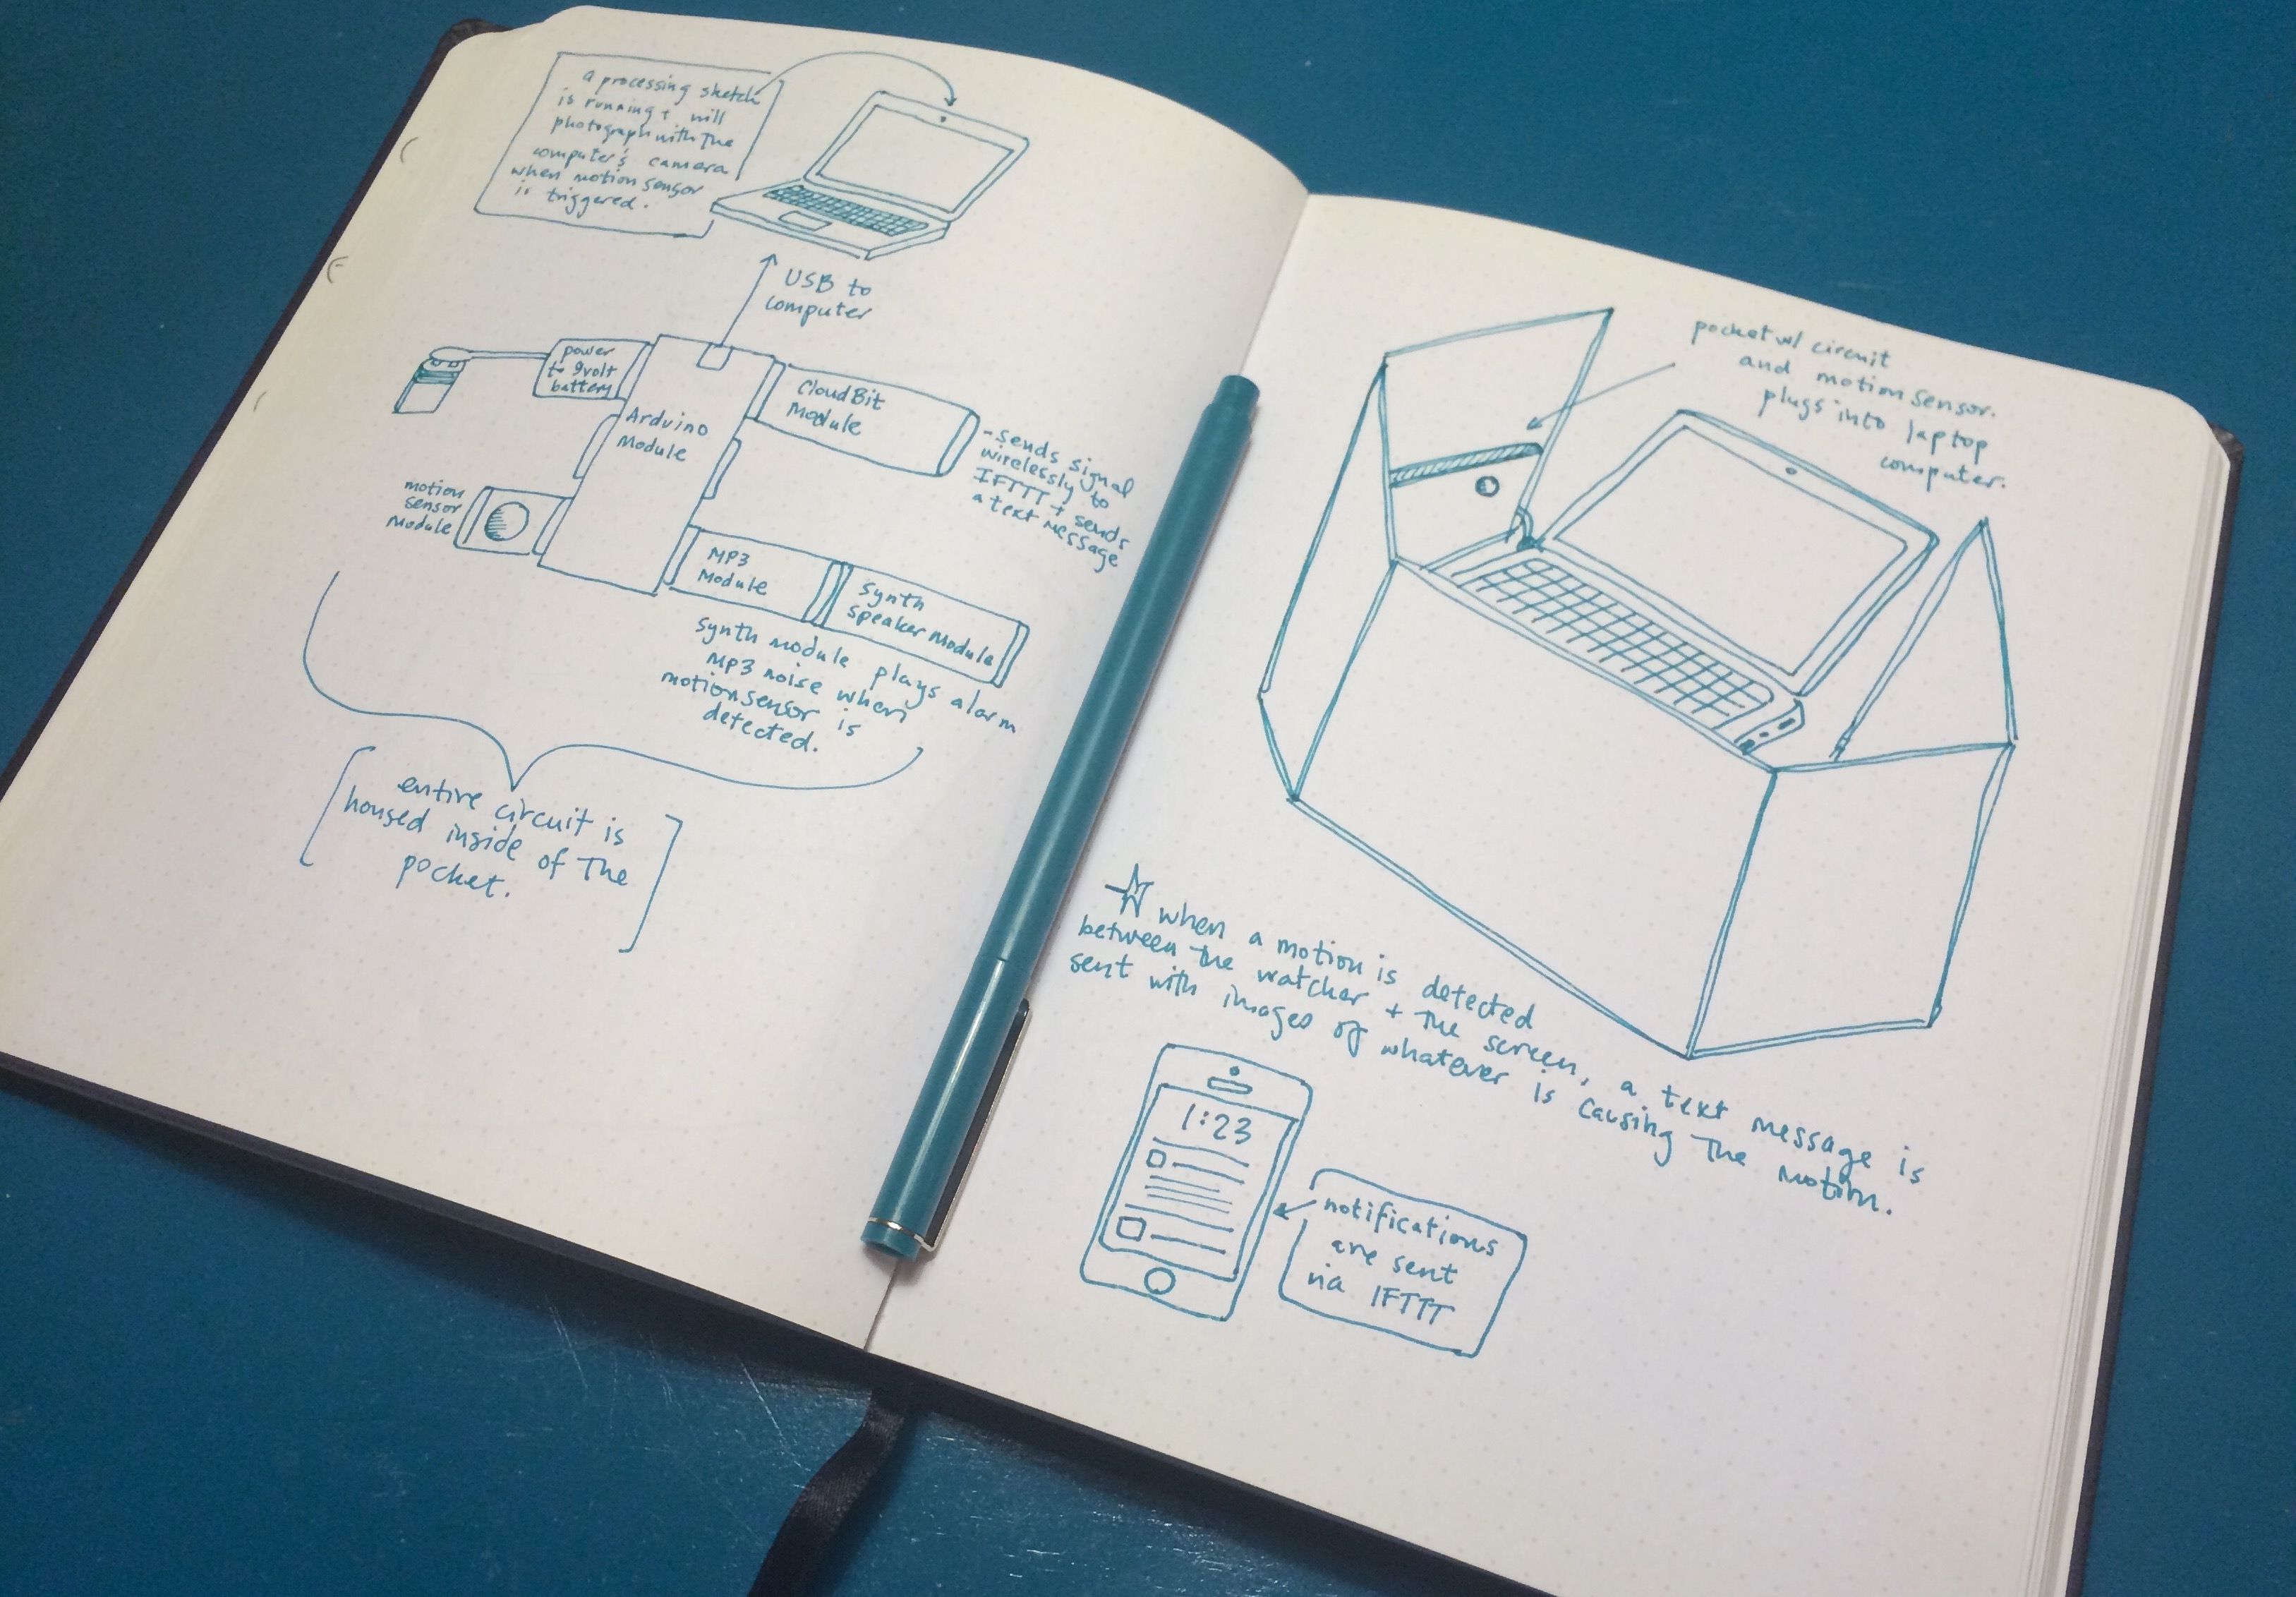 a processing sketch
is running + will
photograph with the
computer's camera
when motion sensor
is triggered.
USB to
computer
power
to 9volt
battery
Arduino
Module
CloudBit
Module
- sends signal
wirelessly to
IFTTT + sends
a text message
motion
sensor
Module
MP3
Module
synth
speaker Module
synth module plays alarm
MP3 noise when
motion sensor is
detected.
entire circuit is
housed inside of the
pocket.
pocket w/ circuit
and motion sensor.
plugs into laptop
computer.
when a motion is detected
between the watcher + the screen, a text message is
sent with images of whatever is causing the motion.
1:23
notifications
are sent
via IFTTT